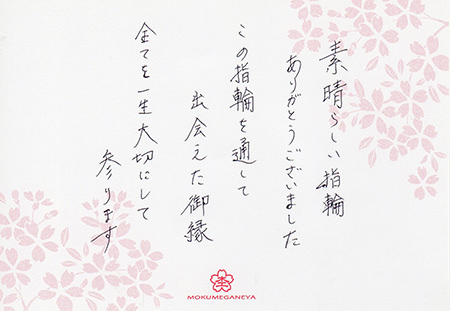 素晴らしい指輪
ありがとうございました
この指輪を通して
出会えた御縁
全てを一生大切にして
参ります
MOKUMEGANEYA